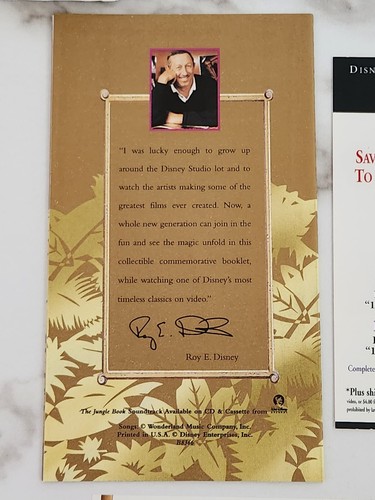 "I was lucky enough to grow up
around the Disney Studio lot and to
watch the artists making some of the
greatest films ever created. Now, a
whole new generation can join in the
fun and see the magic unfold in this
collectible commemorative booklet,
while watching one of Disney's most
timeless classics on video."
Roy E. Disney
Roy E. Disney
The Jungle Book Soundtrack Available on CD & Cassette from
Songs: © Wonderland Music Company, Inc.
Printed in U.S.A. © Disney Enterprises, Inc.
DISN
SAV
TO
"1
"1
Complete
*Plus shi
video, or $4.00
prohibited by la